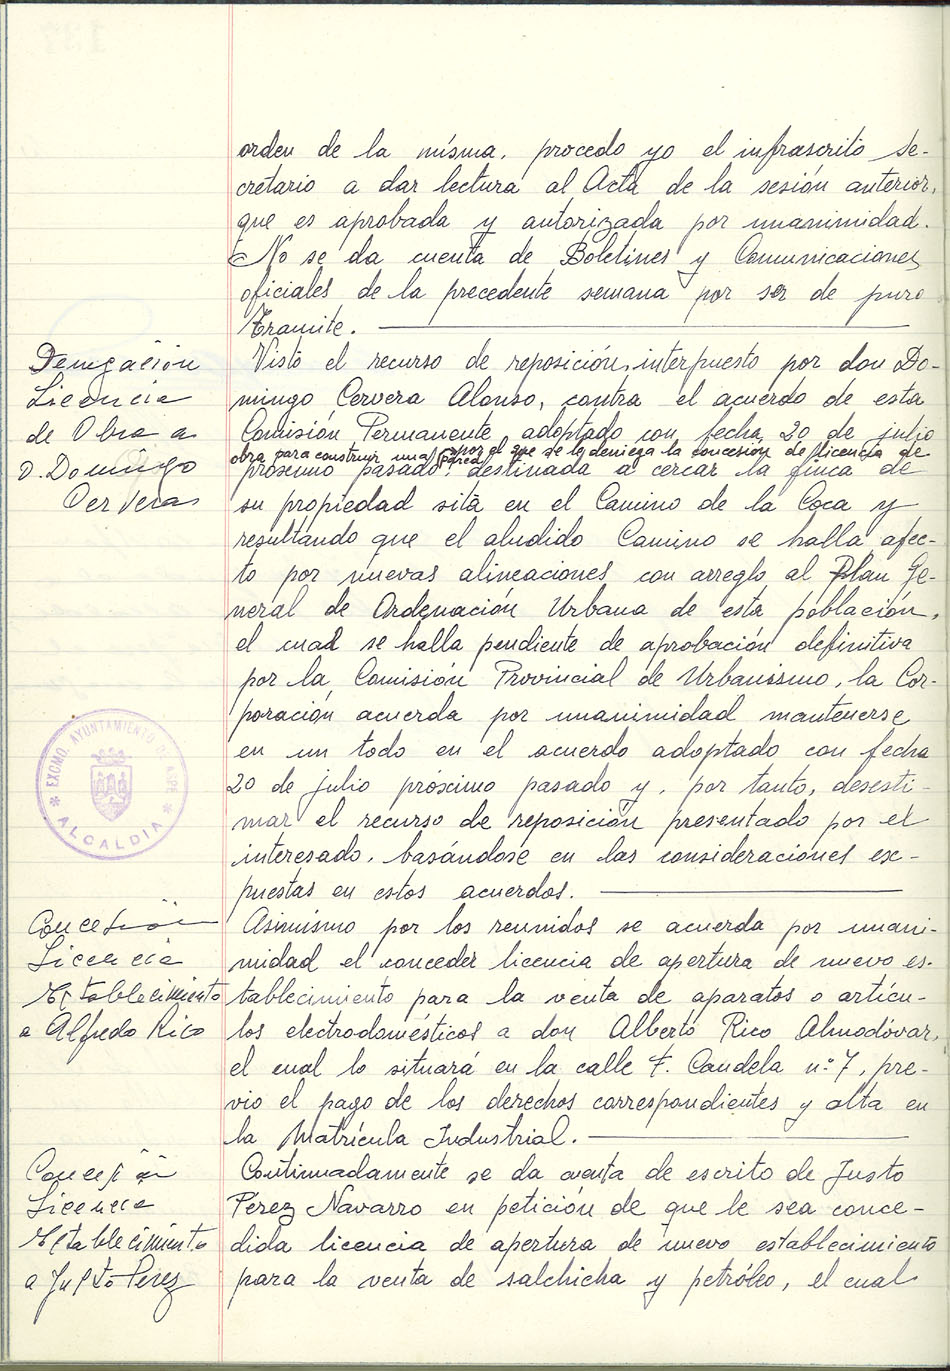 orden de la misma, procedo yo el infrascrito Se-
cretario a dar lectura al Acta de la sesión anterior,
que es aprobada y autorizada por unanimidad.
No se da cuenta de Boletines y Comunicaciones
oficiales de la precedente semana por ser de puro
Tramite.
Denegación
Licencia
de Obra a
D. Domingo
Cerveras
Visto el recurso de reposición, interpuesto por don Do-
mingo Cervera Alonso, contra el acuerdo de esta
Comisión Permanente adoptado con fecha 20 de julio
por el que se le deniega la concesión de licencia de
obra para construir una
próximo pasado destinada a cercar la finca de
su propiedad sita en el Camino de la Coca y
resultando que el aludido Camino se halla afec-
to por nuevas alineaciones con arreglo al Plan Ge-
neral de Ordenación Urbana de esta población,
el cual se halla pendiente de aprobación definitiva
por la Comisión Provincial de Urbanismo, la Cor-
poración acuerda por unanimidad mantenerse
en un todo en el acuerdo adoptado con fecha
20 de julio próximo pasado y, por tanto, desesti-
mar el recurso de reposición presentado por el
interesado, basándose en las consideraciones ex-
puestas en estos acuerdos.
EXCMO. AYUNTAMIENTO DE ASPE
* ALCALDIA *
Concesión
Licencia
Establecimiento
a Alfredo Rico
Asimismo por los reunidos se acuerda por unani-
midad el conceder licencia de apertura de nuevo es-
tablecimiento para la venta de aparatos o artícu-
los electrodomésticos a don Alberto Rico Almodóvar,
el cual lo situará en la calle F. Candela nº 7, pre-
vio el pago de los derechos correspondientes y alta en
la Matrícula Industrial.
Concesión
Licencia
Establecimiento
a Justo Perez
Continuadamente se da cuenta de escrito de Justo
Perez Navarro en petición de que le sea conce-
dida licencia de apertura de nuevo establecimiento
para la venta de salchicha y petróleo, el cual